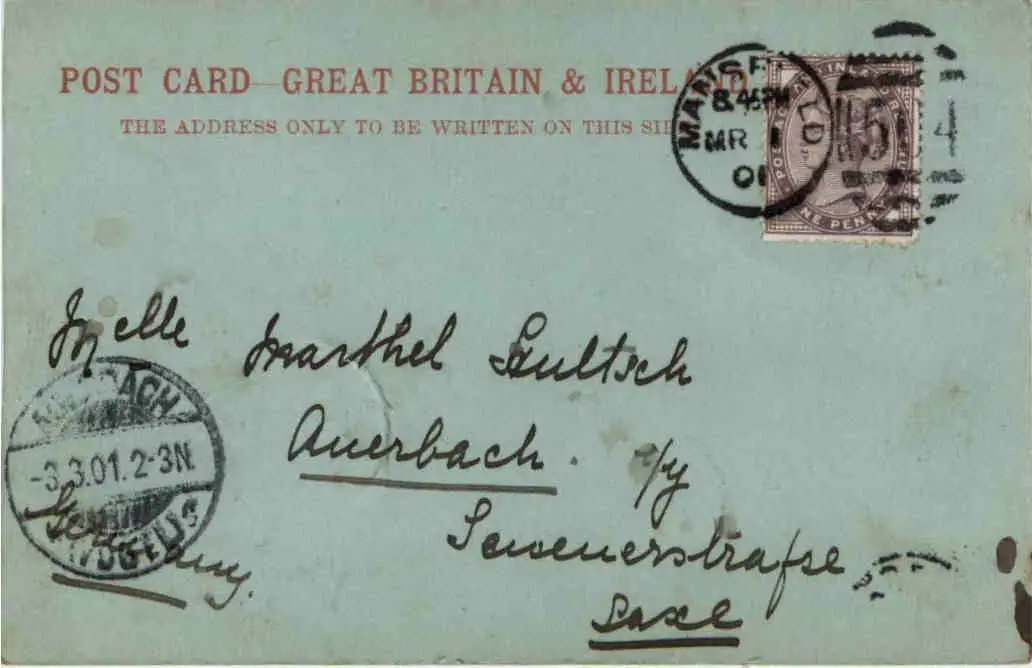 POST CARD—GREAT BRITAIN & IRELAND
THE ADDRESS ONLY TO BE WRITTEN ON THIS SI
MANSFIELD
8.45PM
MR 1
01
ONE PENNY
Mselle Marthel Hultsch
Auerbach . i/V
AUERBACH
-3.3.01.2-3N.
Germany.
Saxe